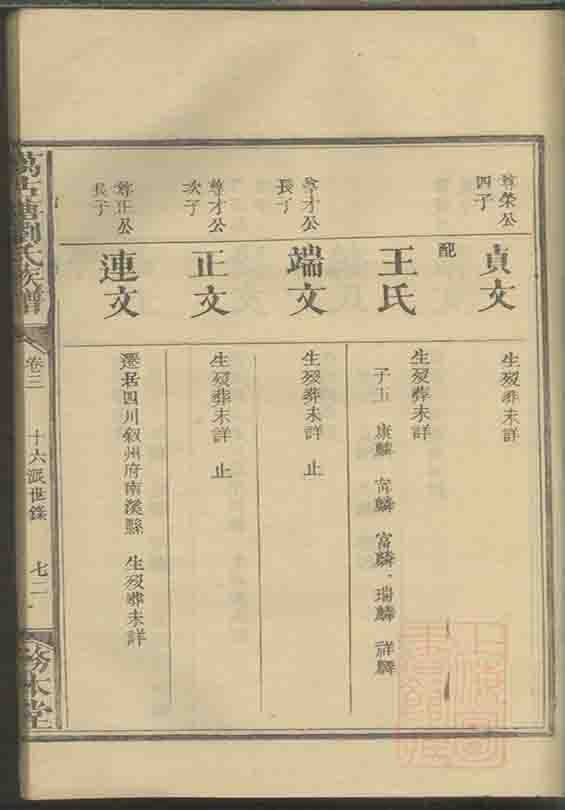 尊榮公
四子
貞文
生歿葬未詳
配
王氏
生歿葬未詳
子五 康麟 富麟 瑞麟 祥麟
尊才公
長子
端文
生歿葬未詳 止
尊才公
次子
正文
生歿葬未詳 止
尊正公
長子
連文
遷居四川叙州府南溪縣 生歿葬未詳
劉氏族譜
卷三
十六派世錄
七二
務本堂
上海圖
書館藏